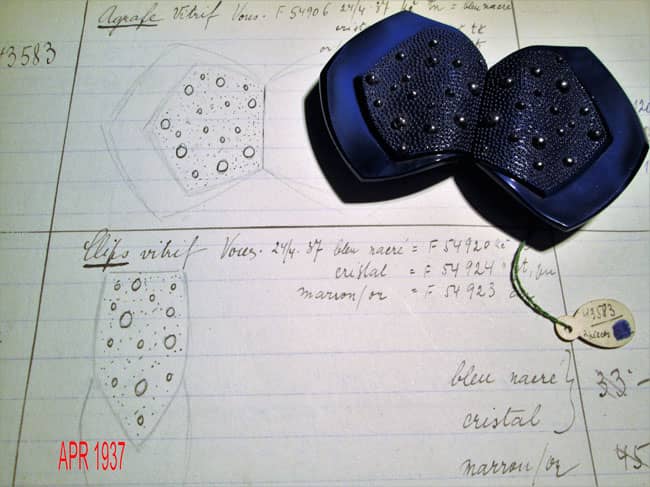 Agrafe Vitrif Voues. F 54906 24/4 37 = bleu nacré
crist
or/
43583
Clips vitrif Voues. 24/4. 37 bleu nacré = F 54920
cristal = F 54924
marron/or = F 54923
43583
bleu nacré 33.-
cristal
marron/or 45
APR 1937